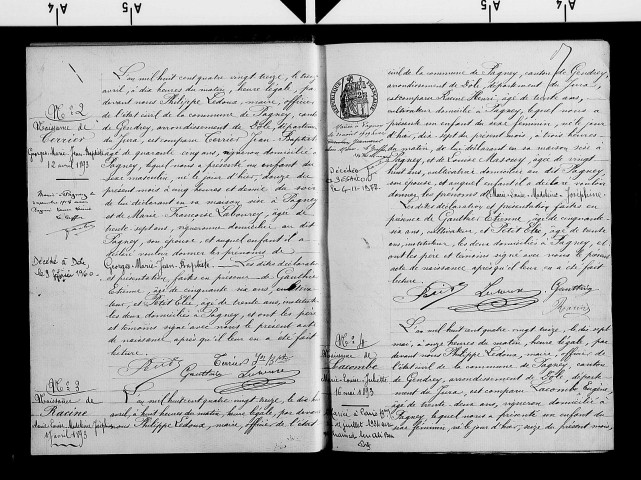 A/4
A/5
N° 2
Naissance de
Terrier
Georges-Marie-Jean-Baptiste
12 avril 1893
Décédé à Dole
L'an mil huit cent quatre vingt treize, le treize
avril, à dix heures du matin, heure légale, par
devant nous Philippe Ledoux, maire, officier
de l'état civil de la commune de Pagney, canton
de Gendrey, arrondissement de Dôle, département
du Jura, est comparu Terrier Jean Baptiste
âgé de quarante cinq ans, vigneron domicilié à
Pagney, lequel nous a présenté un enfant du
sexe masculin, né le jour d'hier, douze du
présent mois à cinq heures et demie du soir
de lui déclarant en sa maison sise à Pagney
et de Marie Françoise Labourey, âgée de
trente sept ans, vigneronne domiciliée au dit
Pagney, son épouse, et auquel enfant il a
déclaré vouloir donner les prénoms de
Georges-Marie-Jean-Baptiste. Les dites déclaration
et présentation, faites en présence de Gauthier
Etienne, âgé de cinquante six ans, cultivateur,
et Petit Elie, âgé de trente ans, instituteur,
les deux domiciliés à Pagney, et ont les père
et témoins signé avec nous le présent acte
de naissance après qu'il leur en a été fait
lecture.
N° 3
Naissance de
Racine
Marie-Louise-Madeleine-Joséphine
17 avril 1893
L'an mil huit cent quatre vingt treize, le dix huit
avril, à huit heures du matin, heure légale, par devant
nous Philippe Ledoux, maire, officier de l'état
civil de la commune de Pagney, canton de Gendrey,
arrondissement de Dôle, département du Jura,
est comparu Racine Henri, âgé de trente ans,
cultivateur domicilié à Pagney, lequel nous a
présenté un enfant du sexe féminin, né le jour
d'hier, dix-sept du présent mois, à trois heures
du matin, de lui déclarant en sa maison sise à
Pagney, et de Louise Massouy, âgée de vingt
huit ans, cultivatrice domiciliée au dit Pagney,
son épouse, et auquel enfant il a déclaré vouloir
donner les prénoms de Marie-Louise-Madeleine-Joséphine.
Les dites déclaration et présentation faites en
présence de Gauthier Etienne, âgé de cinquante-
six ans, cultivateur, et Petit Elie, âgé de trente
ans, instituteur, les deux domiciliés à Pagney, et
ont les père et témoins signé avec nous le présent
acte de naissance après qu'il leur en a été fait
lecture.
Décédée à
BESANCON
le 4-11-1972
N° 4
Naissance de
Lacombe
Marie-Louise-Juliette
16 mai 1893
L'an mil huit cent quatre vingt treize, le dix sept
mai, à onze heures du matin, heure légale, par
devant nous Philippe Ledoux, maire, officier de
l'état civil de la commune de Pagney, canton
de Gendrey, arrondissement de Dôle, départe-
ment du Jura, est comparu Lacombe Eugène,
âgé de trente-deux ans, vigneron domicilié à
Pagney, lequel nous a présenté un enfant du
sexe féminin, né le jour d'hier, seize du présent mois,